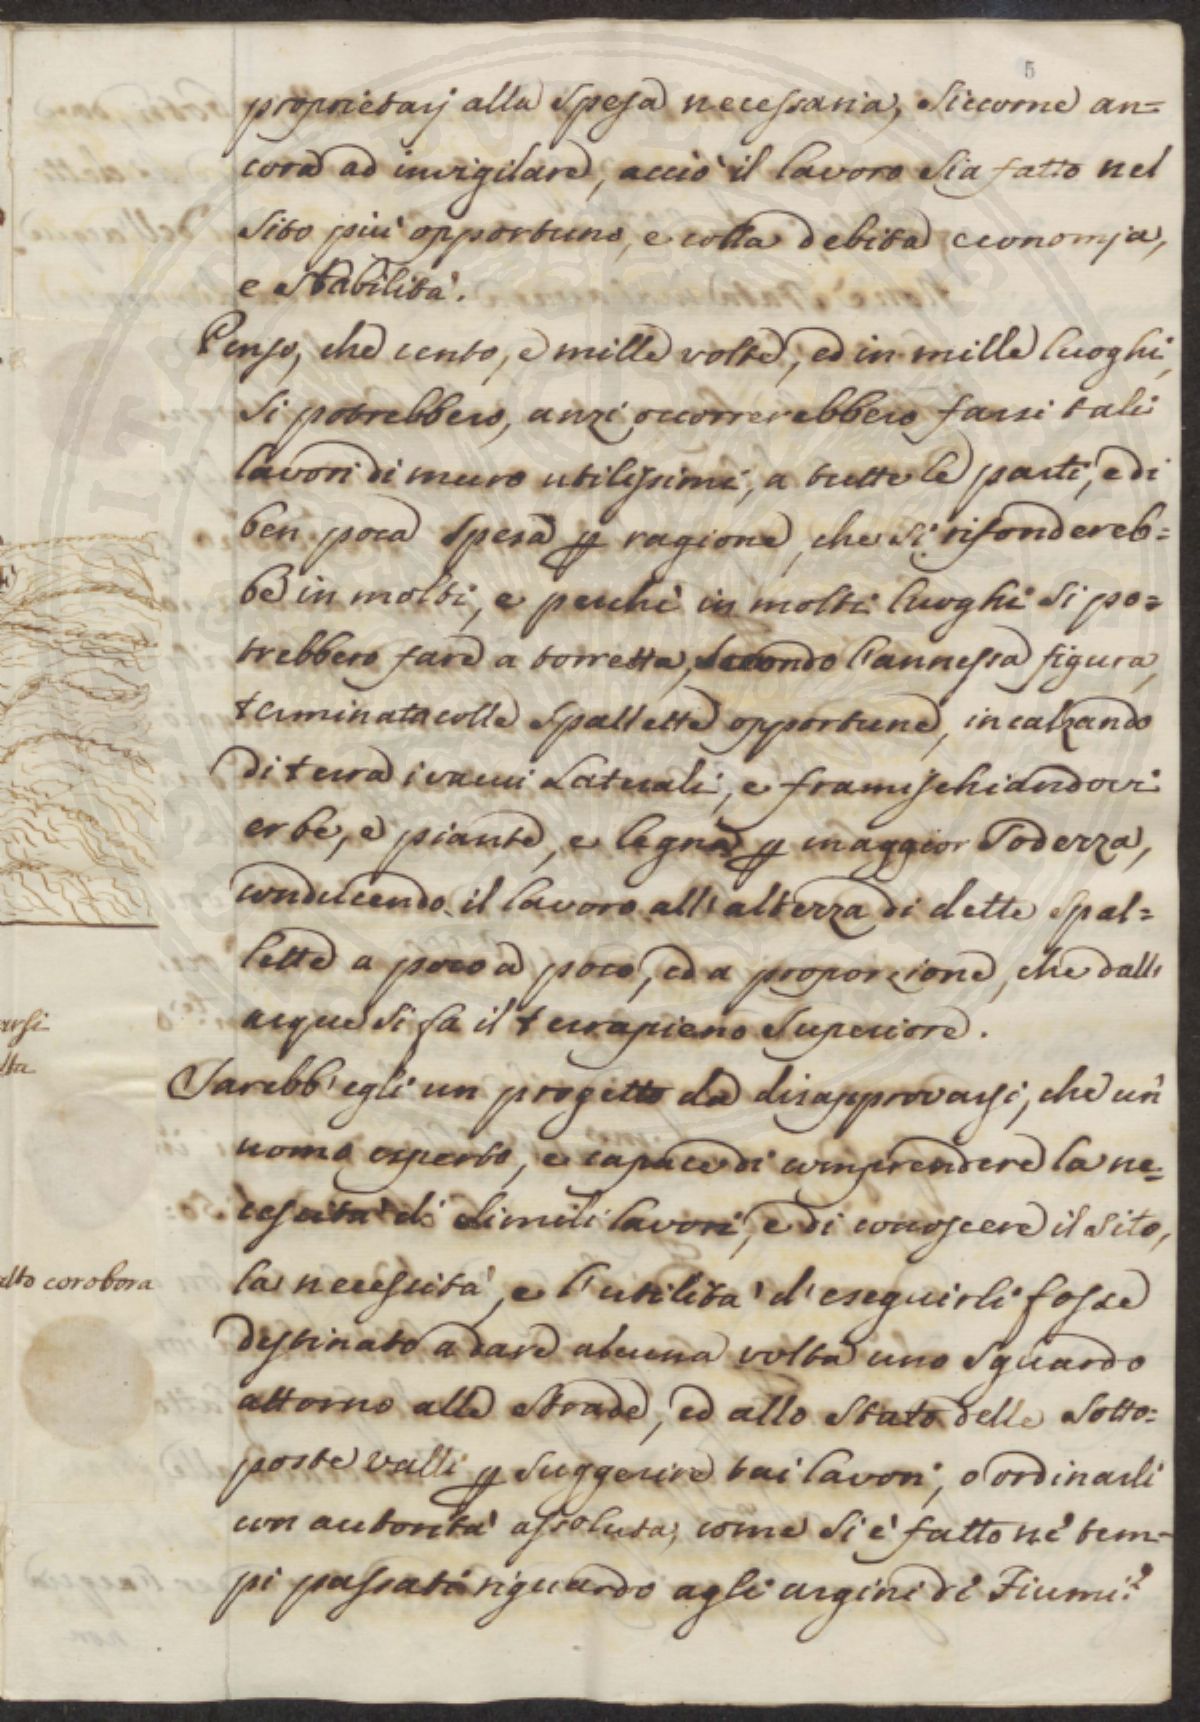 5
proprietarj alla spesa necessaria, siccome an=
cora ad invigilare, acciò il lavoro sia fatto nel
sito più opportuno, e colla debita economja,
e stabilità.
Penso, che cento, e mille volte, ed in mille luoghi,
si potrebbero, anzi occorrerebbero farsi tali
lavori di muro utilissimi, a tutte le parti, e di
ben poca spesa ꝑ ragione, che si rifondereb=
be in molti, e perchè in molti luoghi si po=
trebbero fare a torretta, secondo l'annessa figura,
terminata colle spallette opportune, incalzando
di terra i vacui laterali, e framischiandovi
erbe, e piante, e legna ꝑ maggior sodezza,
conducendo il lavoro all'altezza di dette spal=
lette a poco a poco, ed a proporzione, che dall'
acque si fa il terrapieno superiore.
Sarebb'egli un progetto da disapprovarsi, che un
uomo esperto, e capace di comprendere la ne=
cessità di simili lavori, e di conoscere il sito,
la necessità, e l'utilità d'eseguirli fosse
destinato a dare alcuna volta uno sguardo
attorno alle strade, ed allo stato delle sotto=
poste valli ꝑ suggerire tai lavori, o ordinarli
con autorità assoluta, come si è fatto nè tem=
pi passati riguardo agli argini dè Fiumi?
arsi
lta
alto corobora